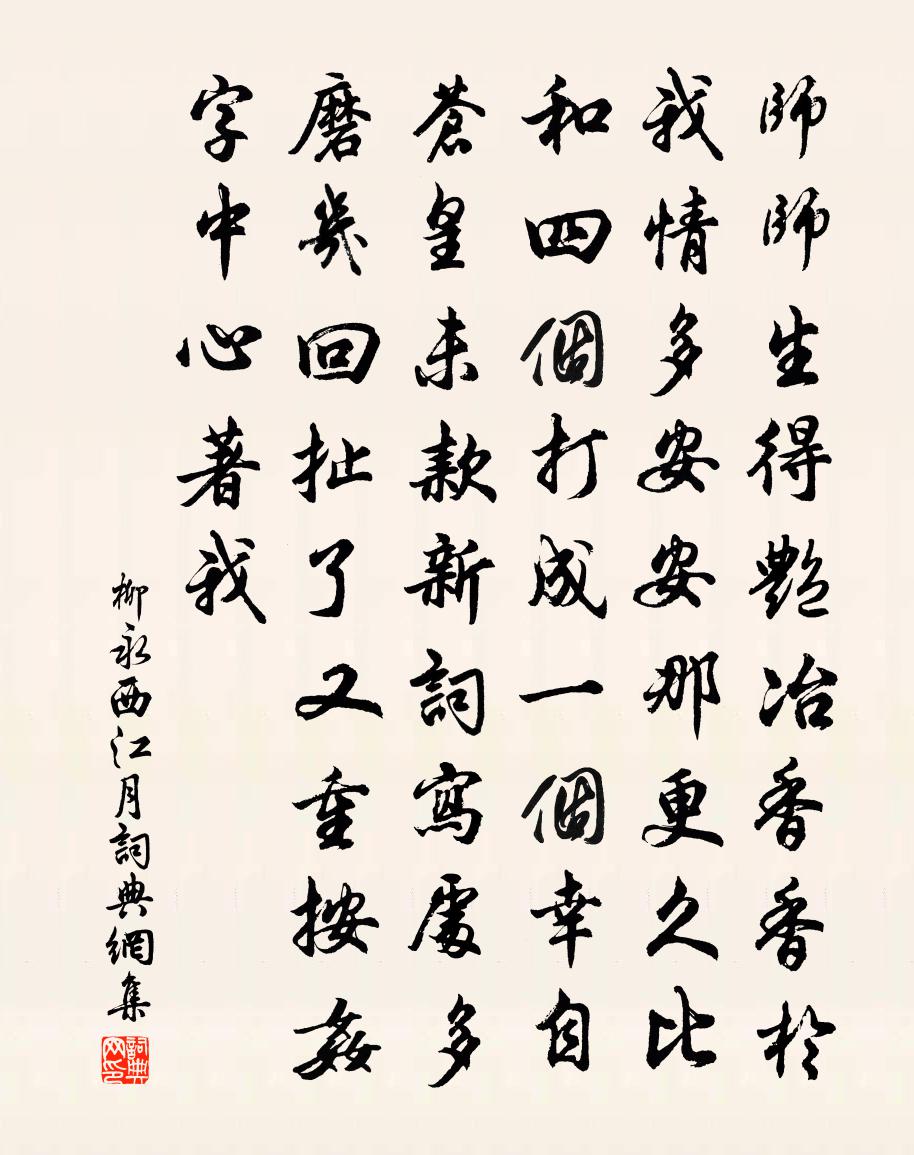 師師生得艷冶香香於
我情多安安那更久比
和四個打成一個幸自
蒼皇未款新詞寫處多
磨幾回扯了又重按姦
字中心著我
柳永西江月詞典網集
詞典网印